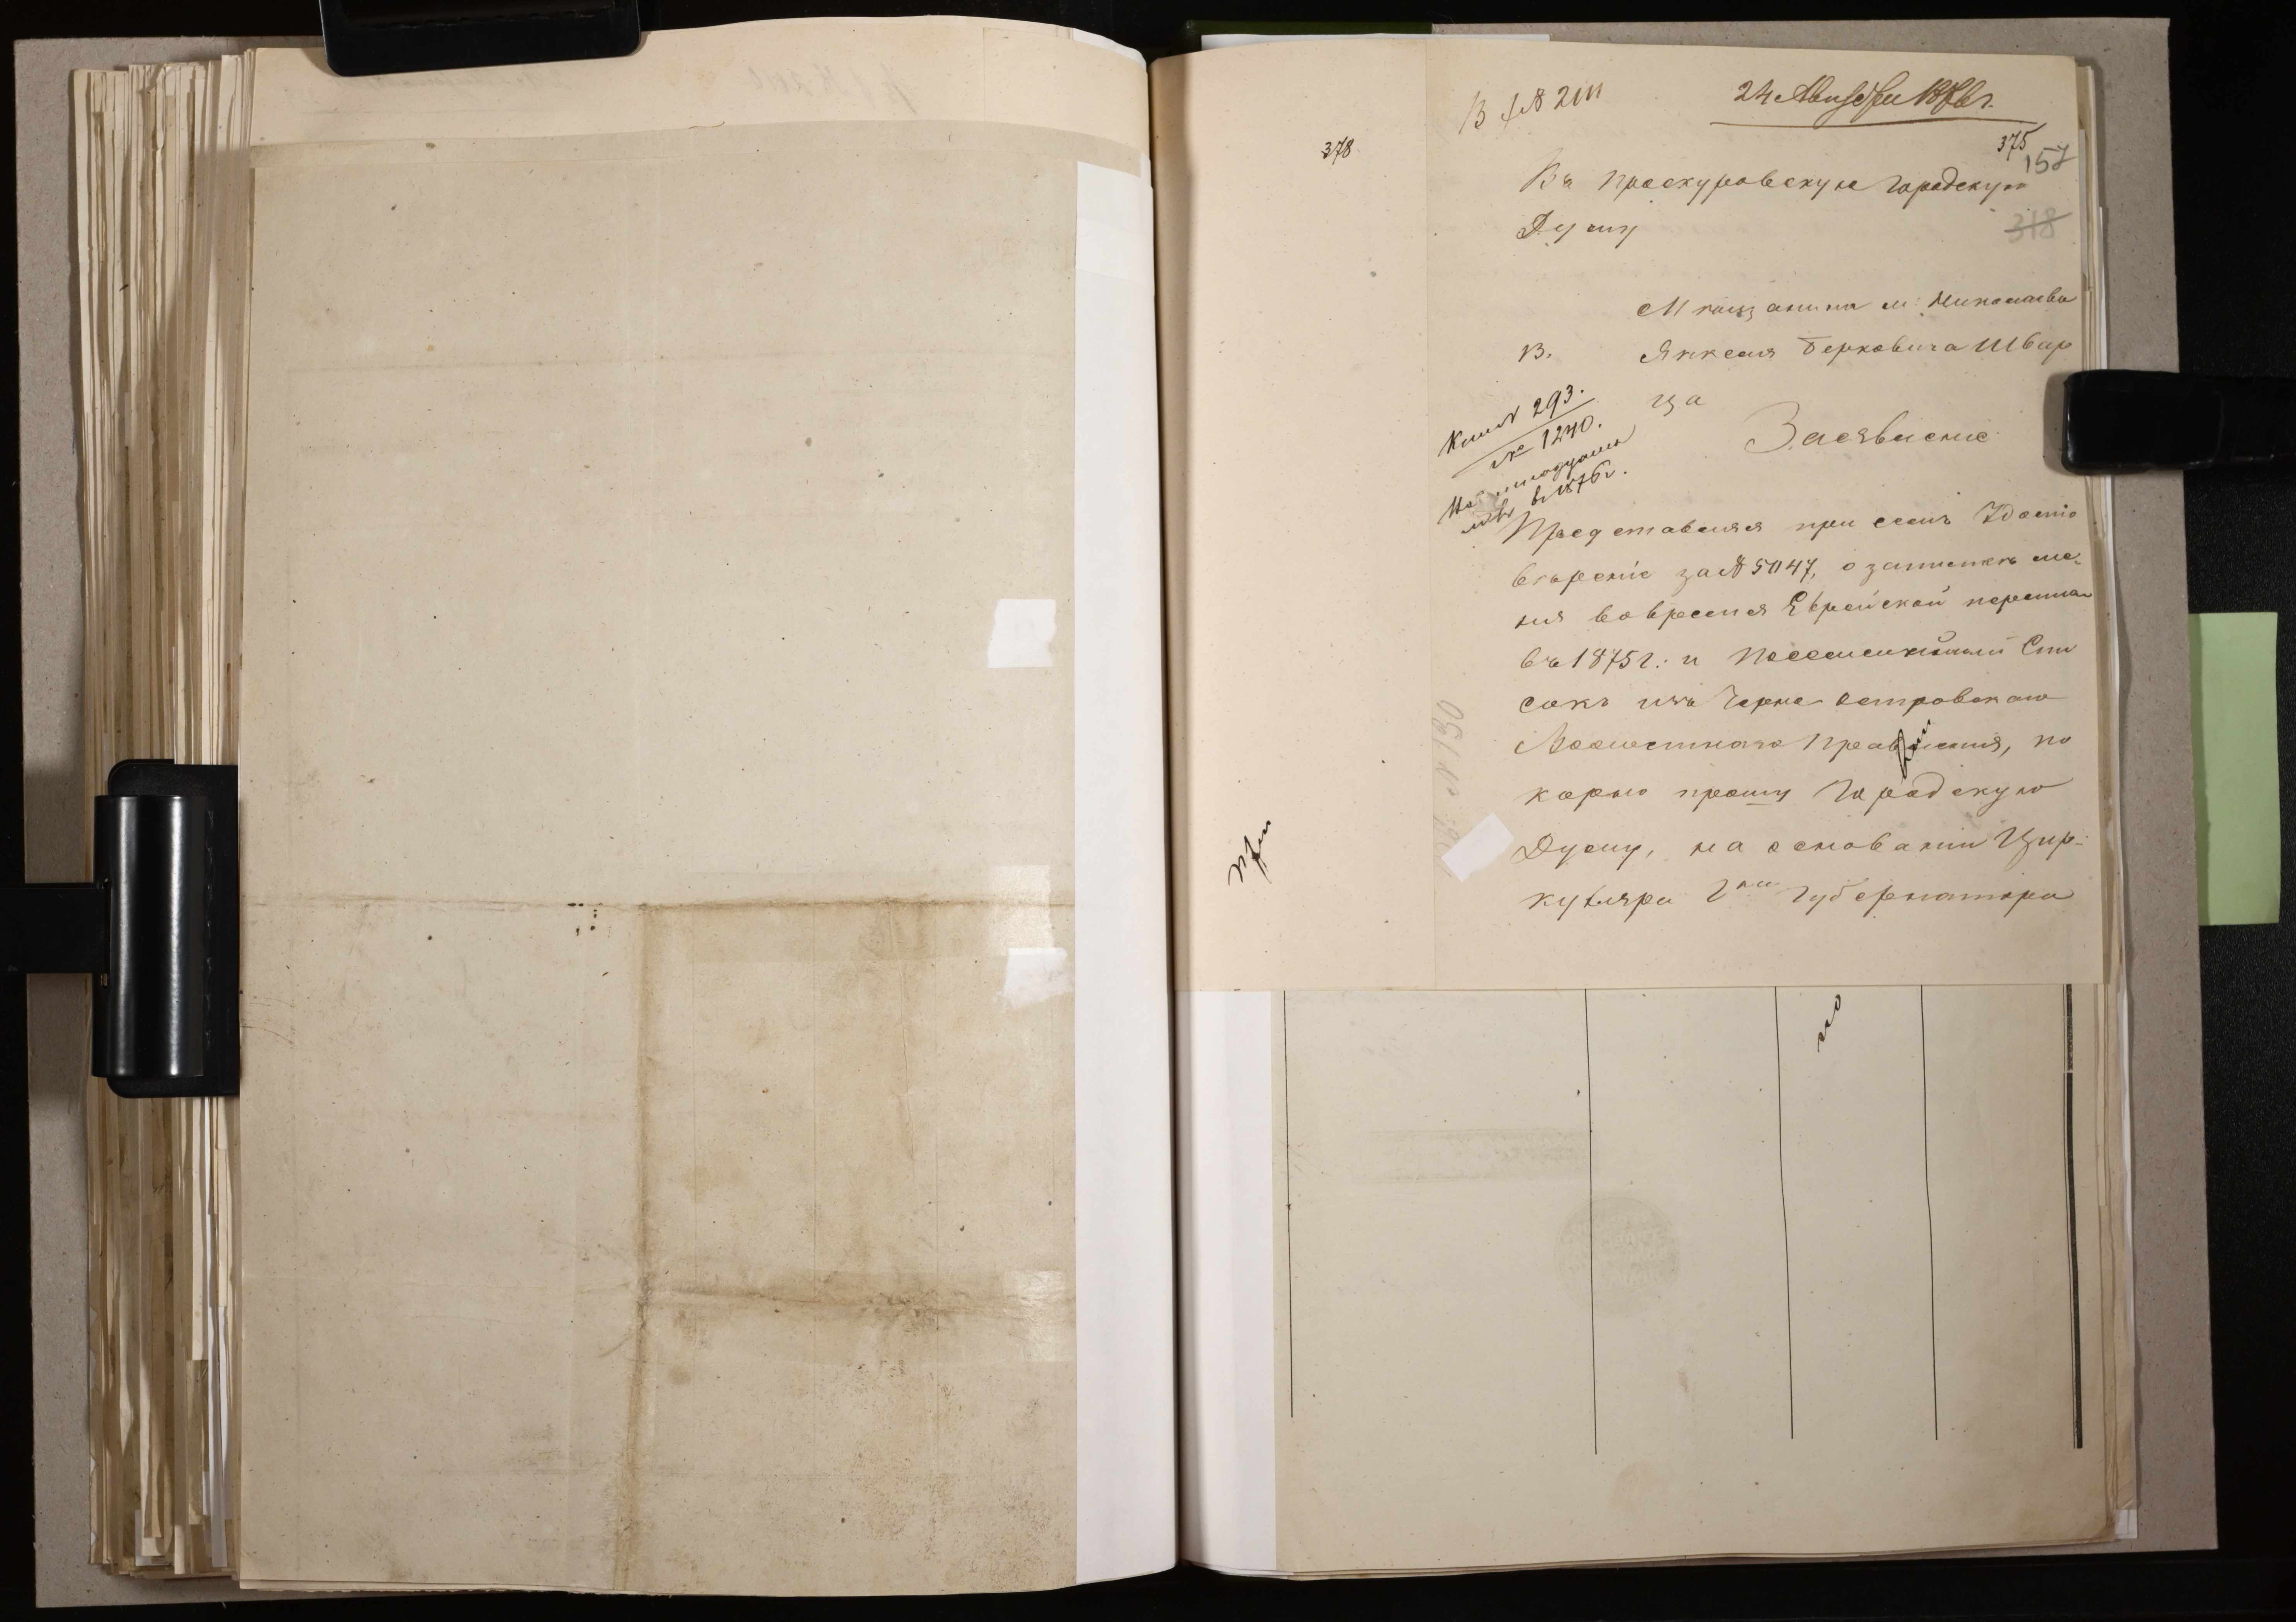 378
В № 2111
24 Августа 1876 г.
375
157
318
Въ Проскуровскую Городскую
Думу
Мѣщанина м. Николаева
В. Янкеля Берковича Швар
ца
№ 293.
№ 1240.
в 1876 г.
Заявленіе
Представляя при семъ Удосто
вѣреніе за № 5047, о запискѣ ме-
ня во время Еврейской переписи
въ 1875 г. и Посемейный Спи
сокъ изъ Черно Островскаго
Волостнаго Правленія, по
корно прошу Городскую
Думу, на основаніи Цир-
куляра Гна Губернатора
№ 130
но